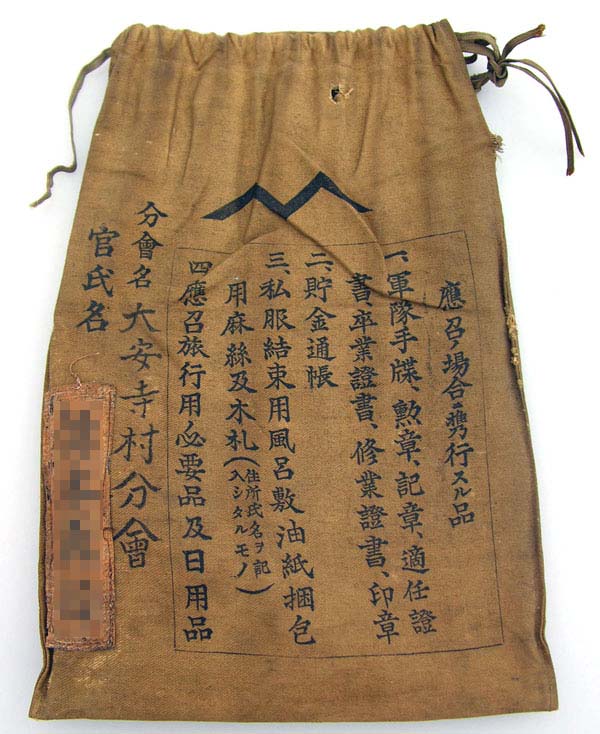 應召ノ場合ニ携行スル品
一、軍隊手牒、勲章、記章、適任證
書、卒業證書、修業證書、印章
二、貯金通帳
三、私服結束用風呂敷油紙捆包
用麻絲及木札(住所氏名ヲ記
入シタルモノ)
四應召旅行用必要品及日用品
分會名 大安寺村分會
官氏名